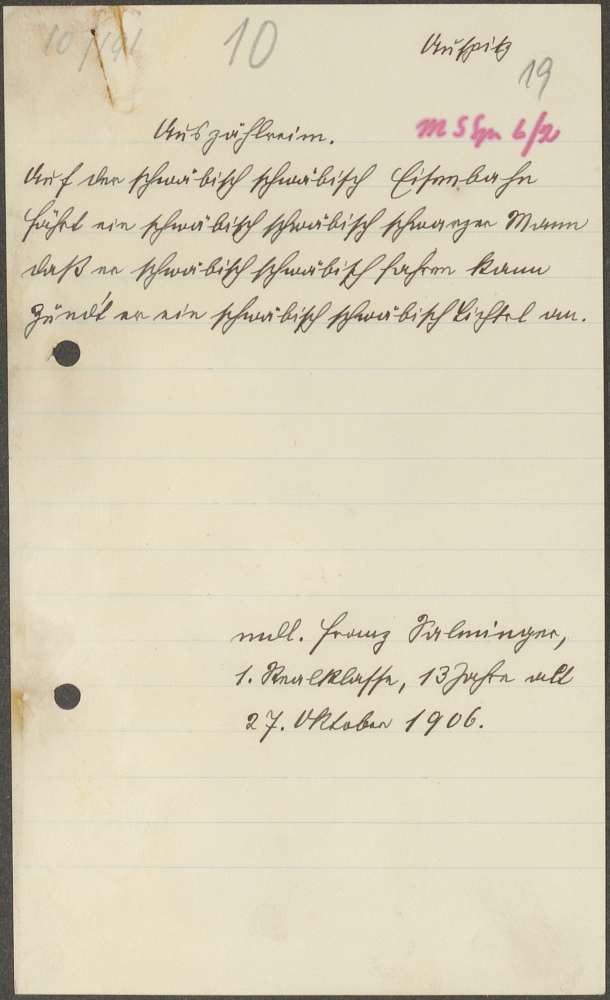 10/191
10
Auspitz
19
Auszählreim.
Auf der schwäbisch schwäbisch Eisenbahn
fährt ein schwäbisch schwäbisch schwarzer Mann
daß er schwäbisch schwäbisch fahren kann
Zünd't er ein schwäbisch schwäbisch Lichtel an.
mdl. Franz Salminger,
1. Realklasse, 13 Jahre alt
27. Oktober 1906.